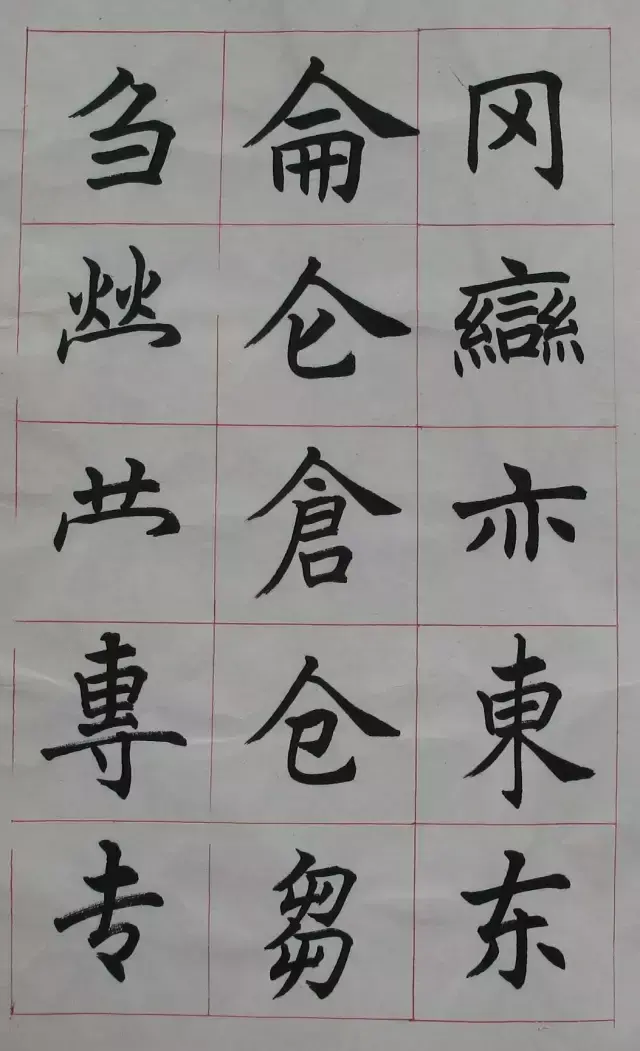 冈䜌亦東东
侖仑倉仓芻
刍𤇾專专